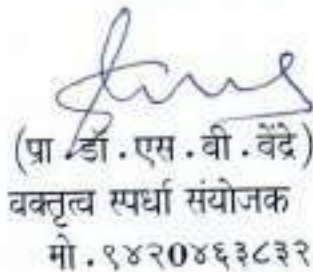 (प्रा .डॉ . एस . बी . वेंद्रे )
वक्तृत्व स्पर्धा संयोजक
मो . ९४२0४६३८३२